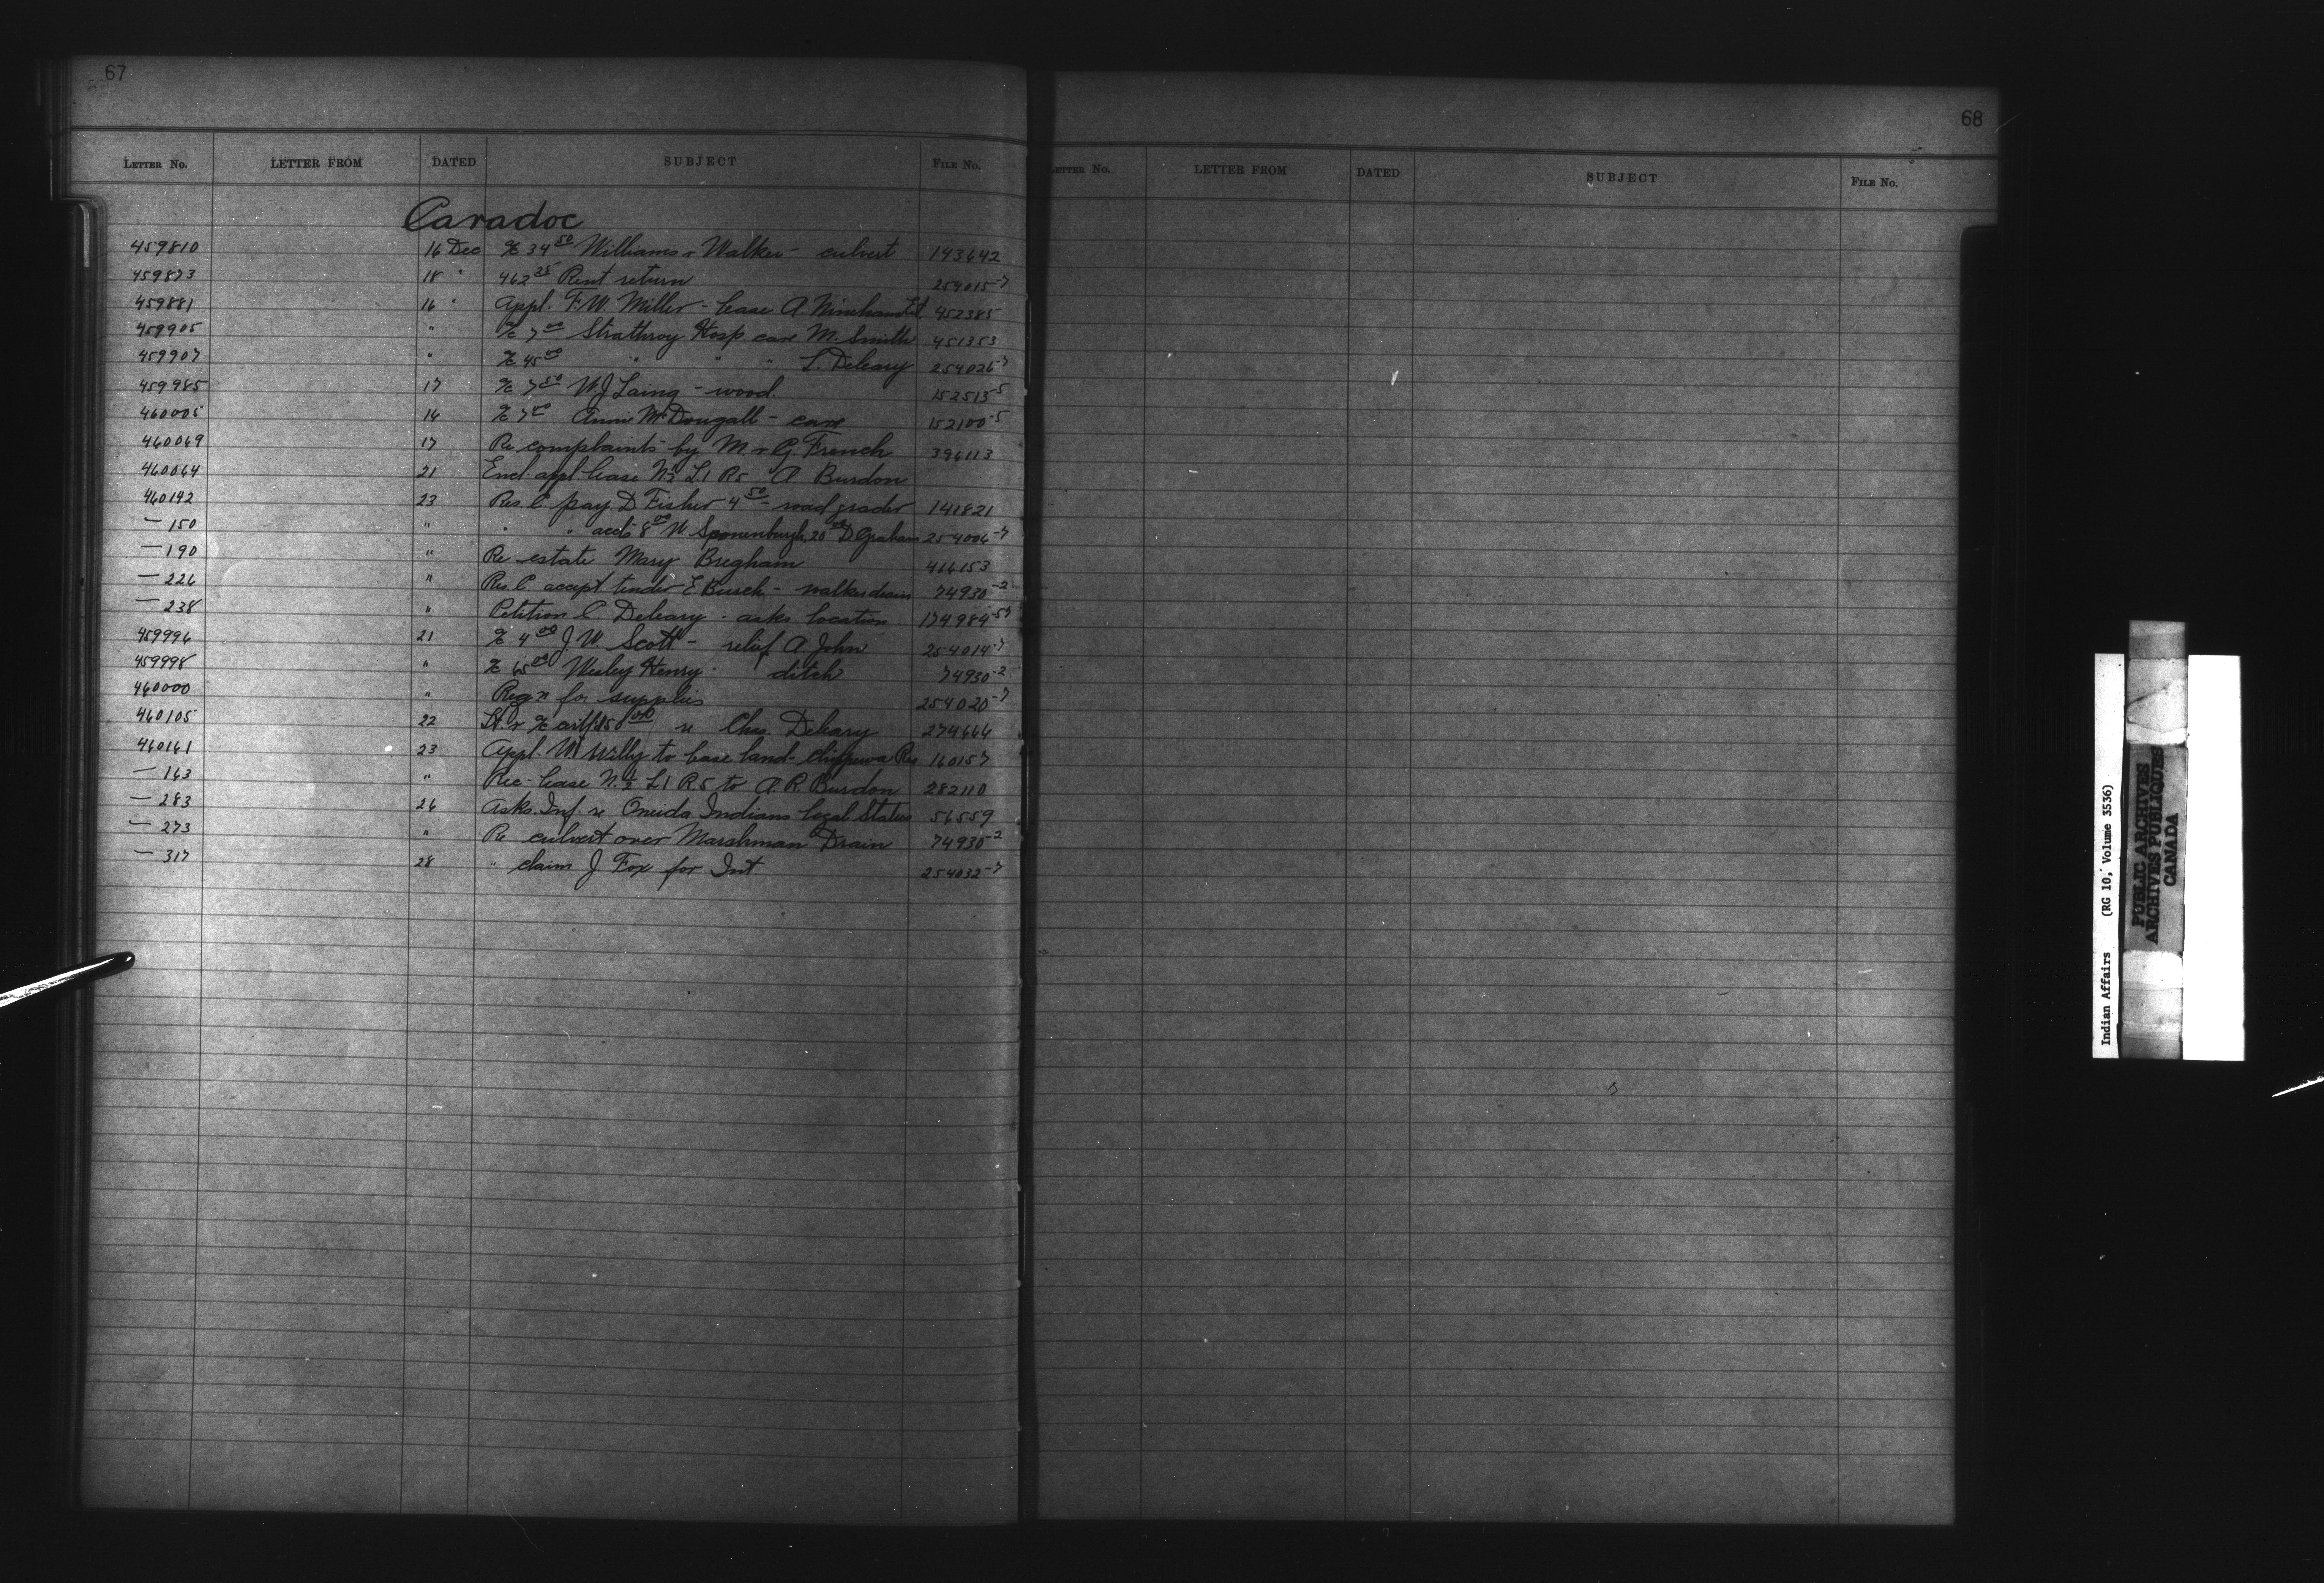 67
LETTER No. LETTER FROM DATED SUBJECT FILE No.
Caradoc
459810 16 Dec % 34 50 Williams & Walker - culvert 143642
459873 18 " 462 35 Rent return 254015-7
459881 16 " Appl. F.W. Miller - lease A. Nimham Lot 452385
459905 " % 7 00 Strathroy Hosp. care M. Smith 451353
459907 " % 45 00 " " " L. Deleary 254026-7
459985 17 % 7 50 W.J. Laing - wood 152513-5
460005 16 % 7 00 Annie McDougall - care 152100-5
460069 17 Re complaints by M. & G. French 396113
460064 21 Encl. appl. lease N½ L1 R5 A Burdon
460142 23 Res. C pay D Fisher 4 50 - road grader 141821
— 150 " " " accts 8 00 W. Sponenburgh, 20 00 D Graham 254006-7
— 190 " Re estate Mary Bregham 416153
— 226 " Res. C accept tender E Burch - walker drain 74930-2
— 238 " Petition C Deleary - asks location 174984-57
459996 21 % 4 00 J W. Scott - relief A. John 254014-7
459998 " % 65 00 Wesley Henry - ditch 74930-2
460000 " Reqn for supplies 254020-7
460105 22 Lt. & % 150 00 re Chas. Deleary 274666
460161 23 Appl. Willy to lease land - Chippewa Res 160157
— 163 " Rec - lease N.½ L1 R.5 to A.R. Burdon 282110
— 283 26 Asks Inf. re Oneida Indians legal Status 56559
— 273 " Re culvert over Marshman Drain 74930-2
— 317 28 " claim J Fox for Int 254032-7
68
LETTER No. LETTER FROM DATED SUBJECT FILE No.
Indian Affairs (RG 10, Volume 3536)
PUBLIC ARCHIVES
ARCHIVES PUBLIQUES
CANADA